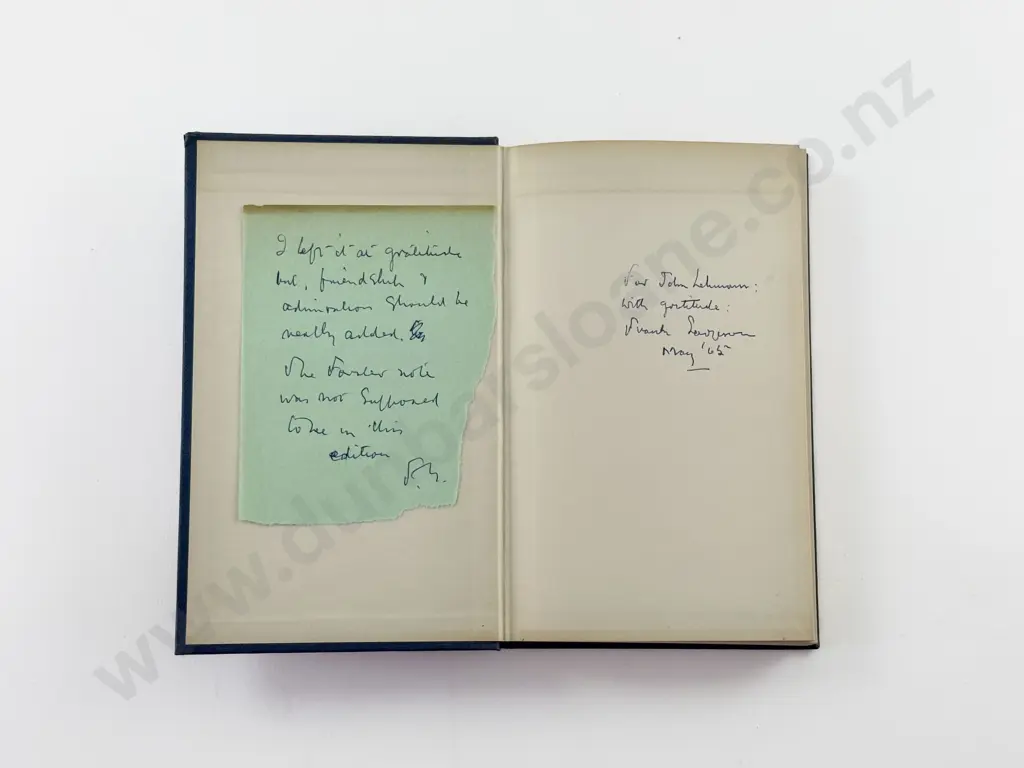 I left it at gratitude
but, friendship &
admiration should be
really added.
The Forster note
was not supposed
to be in this
edition
F.S.
For John Lehmann:
with gratitude:
Frank Sargeson
May '65
www.dunbarsloane.co.nz